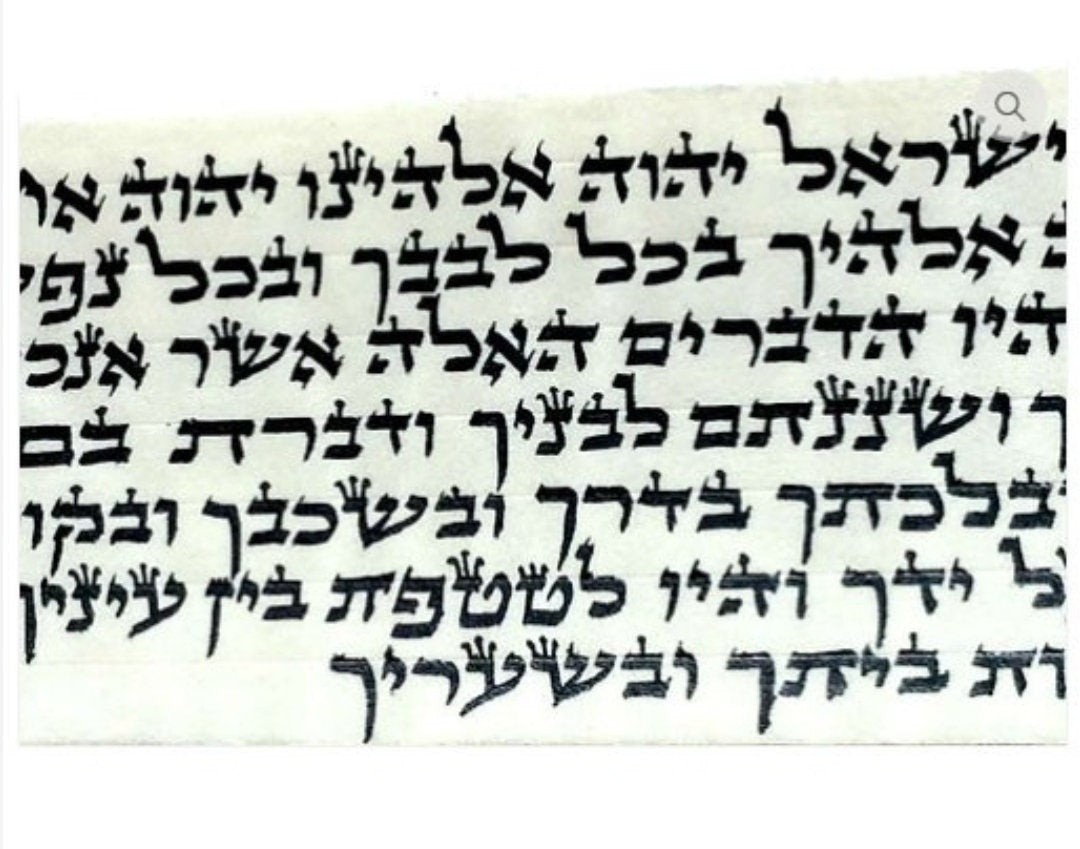 ישראל יהוה אלהינו יהוה
ה אלהיך בכל לבבך ובכל נפ
היו הדברים האלה אשר אנכ
ך ושננתם לבניך ודברת בם
ובלכתך בדרך ובשכבך ובקו
ל ידך והיו לטטפת בין עיניך
ות ביתך ובשעריך